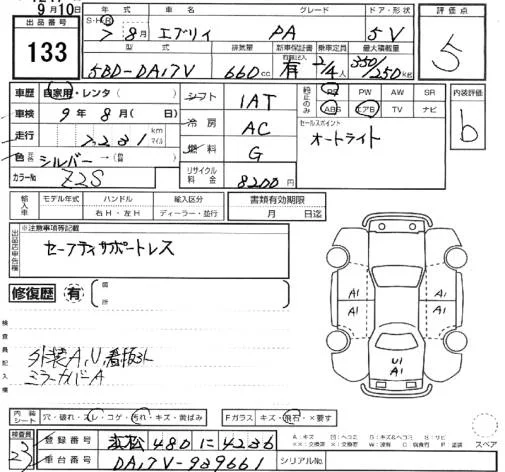 9月10日
出品番号
133
年式 車名 グレード ドア・形状
S・H・R 7 8月 エブリィ PA 5V
型式 排気量 新車保証書 有限記入 乗車定員 最大積載量
5BD-DA17V 660cc 有 2/4人 350/250kg
評価点
5
車歴 自家用・レンタ( )
車検 9年8月( 日)
走行 km マイル
色 元色 シルバー→(色 )
カラーNo Z2S
シフト 1AT
冷房 AC
燃料 G
リサイクル料金 8200円
純正のみ PS PW AW SR
ABS エアB TV ナビ
セールスポイント
オートライト
内装評価
b
輸入車 モデル年式 ハンドル 輸入区分
右H・左H ディーラー・並行
書類有効期限
月 日迄
出品店申告欄
※注意事項等記載
セーフティサポートレス
修復歴 有 ( 箇所 )
検査員記入欄
外装A,U,看板跡
ミラーカバーA
A1 A1
A1 A1
U1
A1
内装シート 穴・破れ・スレ・コゲ・汚れ・キズ・黄ばみ
Fガラス キズ・飛石・×要す
スペア
検査員
23
登録番号 浜松 480 に 4236
車台番号 DA17V-989661
シリアルNo.